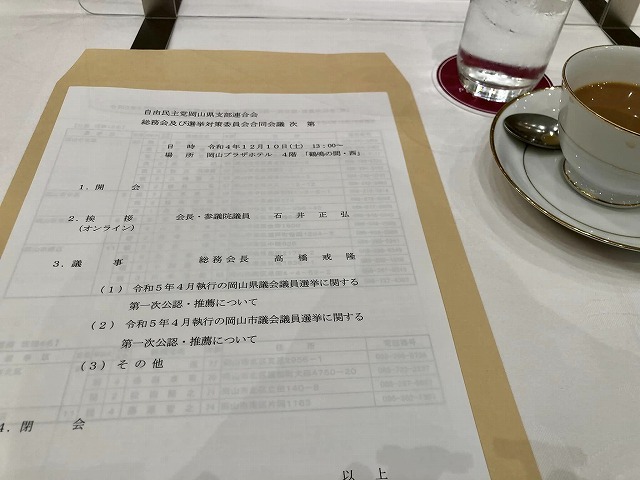 自由民主党岡山県支部連合会
総務会及び選挙対策委員会合同会議 次 第
日 時 令和4年12月10日(土) 13:00～
場 所 岡山プラザホテル 4階 「鶴鳴の間・西」
1.開 会
2.挨 拶 会長・参議院議員 石 井 正 弘
(オンライン)
3.議 事 総務会長 高 橋 戒 隆
(1) 令和5年4月執行の岡山県議会議員選挙に関する
第一次公認・推薦について
(2) 令和5年4月執行の岡山市議会議員選挙に関する
第一次公認・推薦について
(3) そ の 他
4.閉 会
以 上